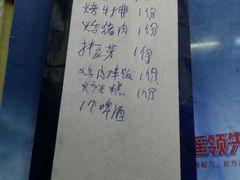 烤牛排 1份
烤猪肉 1份
拌豆芽 1份
鸡肉拌饭 1份
炒年糕 1份
1个啤酒
领先